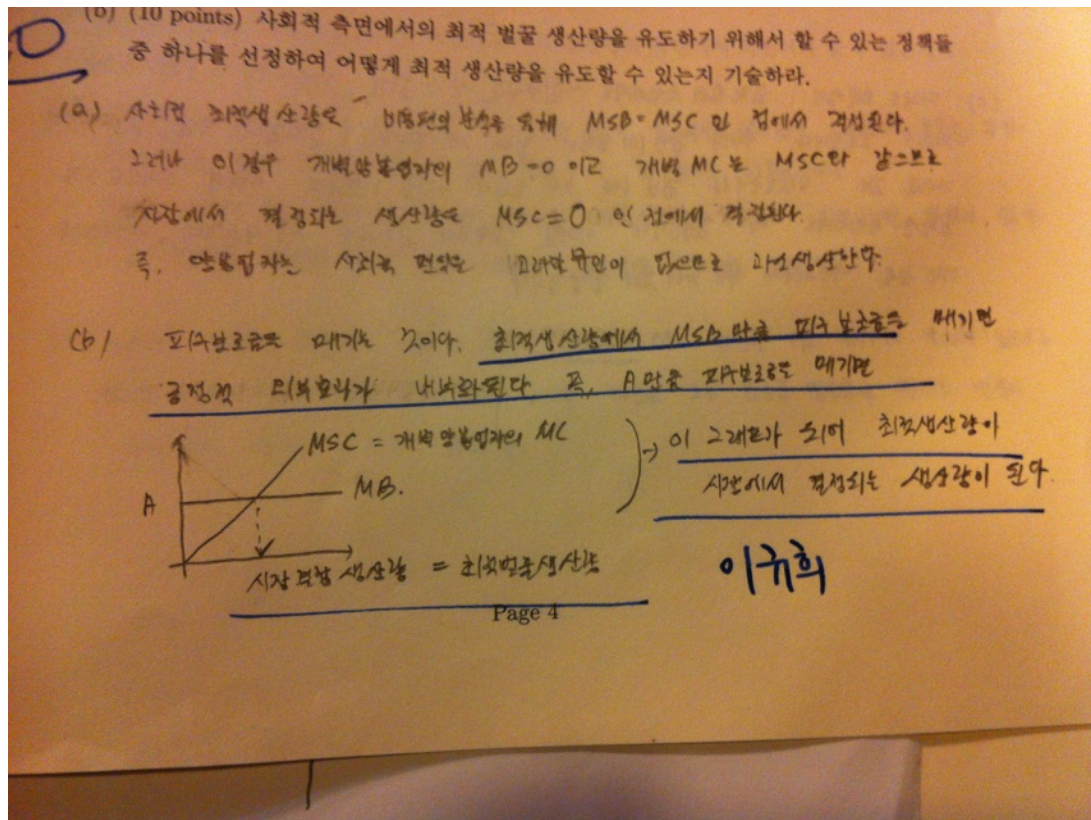 (b) (10 points) 사회적 측면에서의 최적 벌꿀 생산량을 유도하기 위해서 할 수 있는 정책들
중 하나를 선정하여 어떻게 최적 생산량을 유도할 수 있는지 기술하라.
(a) 사회적 최적생산량은 비용편익분석을 통해 MSB=MSC 인 점에서 결정된다.
그러나 이경우 개별양봉업자의 MB=0 이고 개별 MC는 MSC와 같으므로
시장에서 결정되는 생산량은 MSC=0 인 점에서 결정된다.
즉, 양봉업자는 사회적 편익을 고려할 유인이 없으므로 과소생산한다.
(b) 피구보조금을 매기는 것이다. 최적생산량에서 MSB만큼 피구보조금을 매기면
긍정적 외부효과가 내부화된다. 즉, A만큼 피구보조금을 매기면
MSC = 개별양봉업자의 MC
A
MB.
→ 이 그래프가 되어 최적생산량이
시장에서 결정되는 생산량이 된다.
시장 균형 생산량 = 최적벌꿀생산량
이규희
Page 4